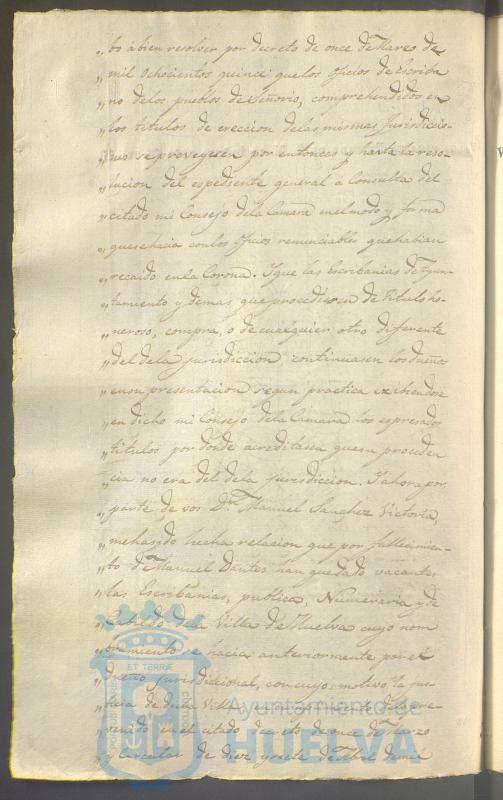 „bo á bien resolver por decreto de once de Marzo de
„mil ochocientos quince que los oficios de Escriba
„no de los pueblos de Señorio, comprehendidos en
„los titulos de ereccion de las mismas Jurisdiccio-
„nes se proveyesen por entonces y hasta la reso-
„lucion del espediente general á Consulta del
„citado mi Consejo de la Camara en el modo y forma
„que se hacia con los oficios renunciables que habian
„recaido en la Corona. Y que las Escribanias de Ayun-
„tamiento y demas que procediesen de titulo ho-
„neroso, compra, o de cualquier otro diferente
„del de la jurisdiccion, continuasen los dueños
„en su presentacion segun practica exibiendose
„en dicho mi Consejo de la Camara los espresados
„titulos por donde acreditasen que su proceden
„cia no era del de la Jurisdiccion. Y ahora por
„parte de vos Dn. Manuel Sanchez Victoria,
„me ha sido hecha relacion que por fallecimien-
„to de Manuel Dantes han quedado vacantes
„las Escribanias, publica, Numeraria y de
„Cabildo de la Villa de Huelva cuyo nom
„bramiento se hacia anteriormente por el
„dueño jurisdiccional, con cuyo motivo la jus-
„ticia de dicha Villa en cumplimiento de lo pre-
„venido en el citado decreto de once de Marzo
„y circular de diez y siete de Abril de mil
ET TERRÆ
Ayuntamiento de
HUELVA